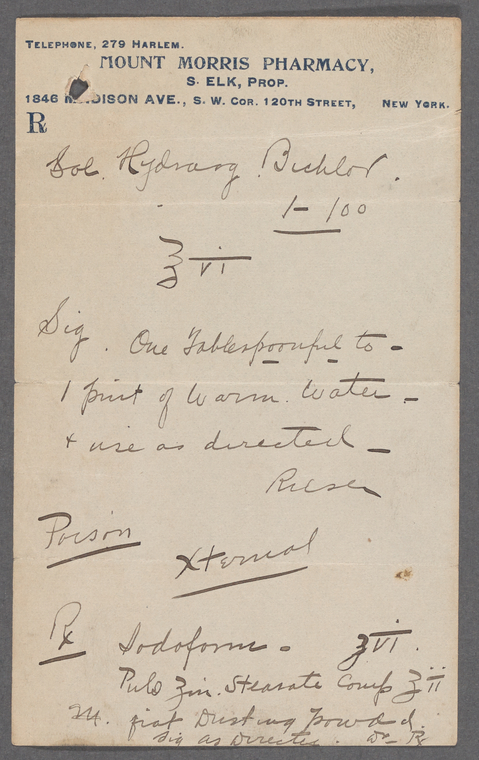 TELEPHONE, 279 HARLEM.
MOUNT MORRIS PHARMACY,
S. ELK, PROP.
1846 MADISON AVE., S. W. COR. 120TH STREET, NEW YORK.
℞
Sol. Hydrarg. Bichlor.
1-100
℥ vi
Sig. One Tablespoonful to -
1 pint of Warm. Water -
+ use as directed -
Poison
Xternal
Rx Iodoform - ʒ vi.
Pulv Zin. Stearate Comp ʒ ii
M. fiat Dusting Powd
Sig as Directed.